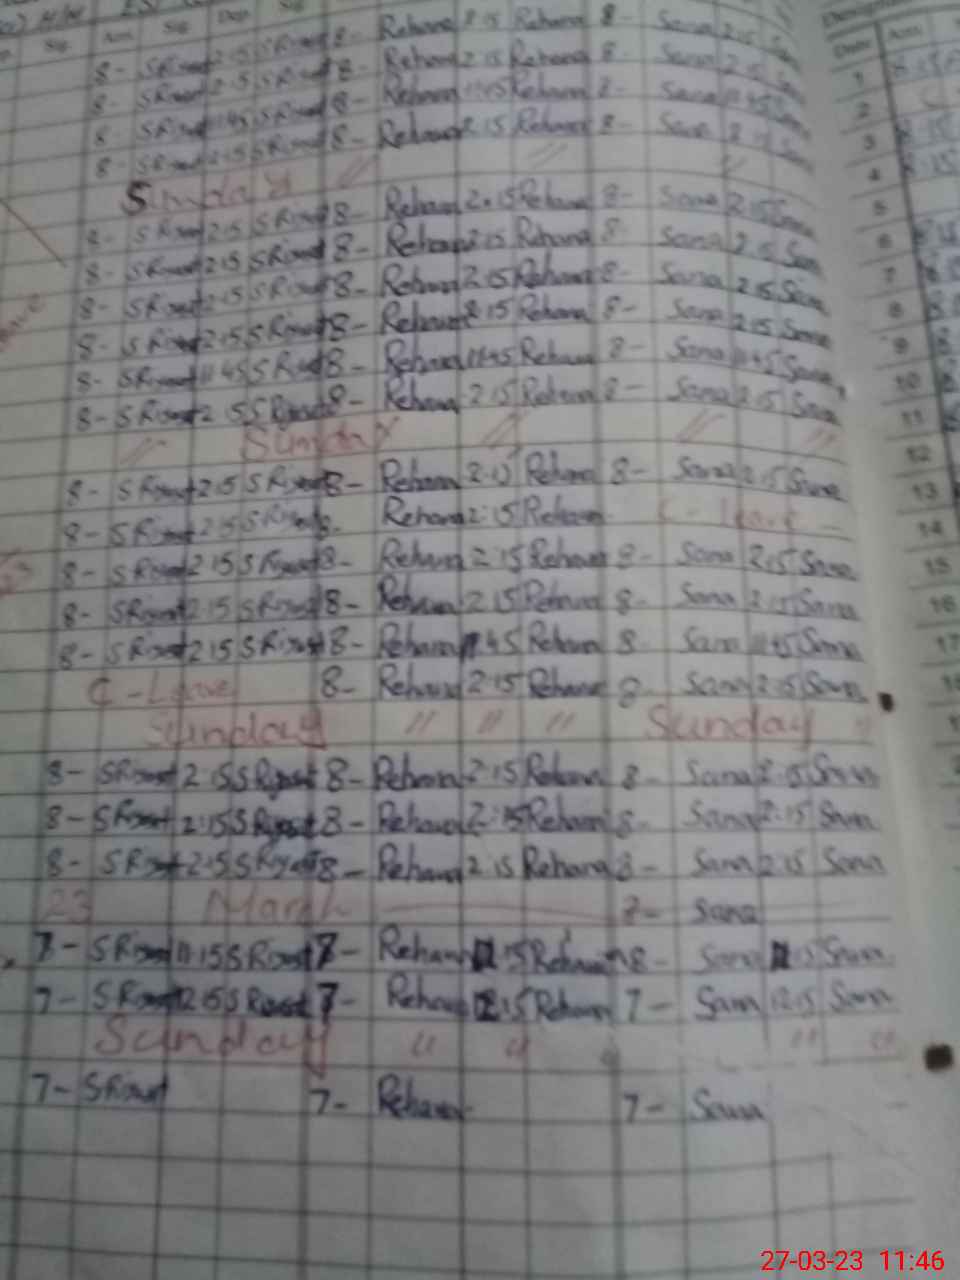 Sig Arr: Sig Dep Sig
8- SRisat 2:15 SRisat 8- Rehana 2:15 Rehana 8- Sana 2:15 Sana
8- SRisat 2:15 SRisat 8- Rehana 2:15 Rehana 8- Sana 2:15 Sana
8- SRisat 11:45 SRisat 8- Rehana 11:45 Rehana 8- Sana 11:45 Sana
8- SRisat 2:15 SRisat 8- Rehana 2:15 Rehana 8- Sana 2:15 Sana
Sunday // // //
8- SRisat 2:15 SRisat 8- Rehana 2:15 Rehana 8- Sana 2:15 Sana
8- SRisat 2:15 SRisat 8- Rehana 2:15 Rehana 8- Sana 2:15 Sana
8- SRisat 2:15 SRisat 8- Rehana 2:15 Rehana 8- Sana 2:15 Sana
8- SRisat 2:15 SRisat 8- Rehana 2:15 Rehana 8- Sana 2:15 Sana
8- SRisat 11:45 SRisat 8- Rehana 11:45 Rehana 8- Sana 11:45 Sana
8- SRisat 2:15 SRisat 8- Rehana 2:15 Rehana 8- Sana 2:15 Sana
// Sunday // // //
8- SRisat 2:15 SRisat 8- Rehana 2:15 Rehana 8- Sana 2:15 Sana
8- SRisat 2:15 SRisat 8- Rehana 2:15 Rehana C - Leave -
8- SRisat 2:15 SRisat 8- Rehana 2:15 Rehana 8- Sana 2:15 Sana
8- SRisat 2:15 SRisat 8- Rehana 2:15 Rehana 8- Sana 2:15 Sana
8- SRisat 2:15 SRisat 8- Rehana 11:45 Rehana 8- Sana 11:45 Sana
C - Leave 8- Rehana 2:15 Rehana 8- Sana 2:15 Sana
Sunday // // // Sunday //
8- SRisat 2:15 SRisat 8- Rehana 2:15 Rehana 8- Sana 2:15 Sana
8- SRisat 2:15 SRisat 8- Rehana 2:15 Rehana 8- Sana 2:15 Sana
8- SRisat 2:15 SRisat 8- Rehana 2:15 Rehana 8- Sana 2:15 Sana
23 March 7- Sana
7- SRisat 11:15 SRisat 7- Rehana 12:15 Rehana 8- Sana 12:15 Sana
7- SRisat 12:15 SRisat 7- Rehana 12:15 Rehana 7- Sana 12:15 Sana
Sunday // // // //
7- SRisat 7- Rehana 7- Sana
Date Arr:
1
2
3
4
5
6
7
8
9
10
11
12
13
14
15
16
17
27-03-23 11:46